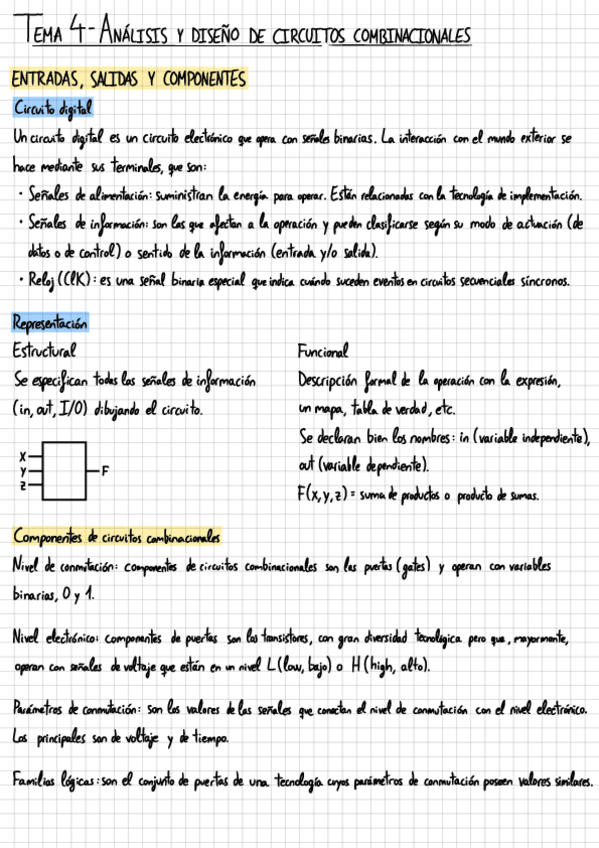 TEMA 4 - ANÁLISIS Y DISEÑO DE CIRCUITOS COMBINACIONALES
ENTRADAS, SALIDAS Y COMPONENTES
Circuito digital
Un circuito digital es un circuito electrónico que opera con señales binarias. La interacción con el mundo exterior se
hace mediante sus terminales, que son:
· Señales de alimentación: suministran la energía para operar. Están relacionadas con la tecnología de implementación.
· Señales de información: son las que afectan a la operación y pueden clasificarse según su modo de actuación (de
datos o de control) o sentido de la información (entrada y/o salida).
· Reloj (ClK): es una señal binaria especial que indica cuándo suceden eventos en circuitos secuenciales síncronos.
Representación
Estructural
Se especifican todas las señales de información
(in, out, I/O) dibujando el circuito.
X
Y
Z
F
Funcional
Descripción formal de la operación con la expresión,
un mapa, tabla de verdad, etc.
Se declaran bien los nombres: in (variable independiente),
out (variable dependiente).
F(x, y, z) = suma de productos o producto de sumas.
Componentes de circuitos combinacionales
Nivel de conmutación: componentes de circuitos combinacionales son las puertas (gates) y operan con variables
binarias, 0 y 1.
Nivel electrónico: componentes de puertas son los transistores, con gran diversidad tecnológica pero que, mayormente,
operan con señales de voltaje que están en un nivel L (low, bajo) o H (high, alto).
Parámetros de conmutación: son los valores de las señales que conectan el nivel de conmutación con el nivel electrónico.
Los principales son de voltaje y de tiempo.
Familias lógicas: son el conjunto de puertas de una tecnología cuyos parámetros de conmutación poseen valores similares.